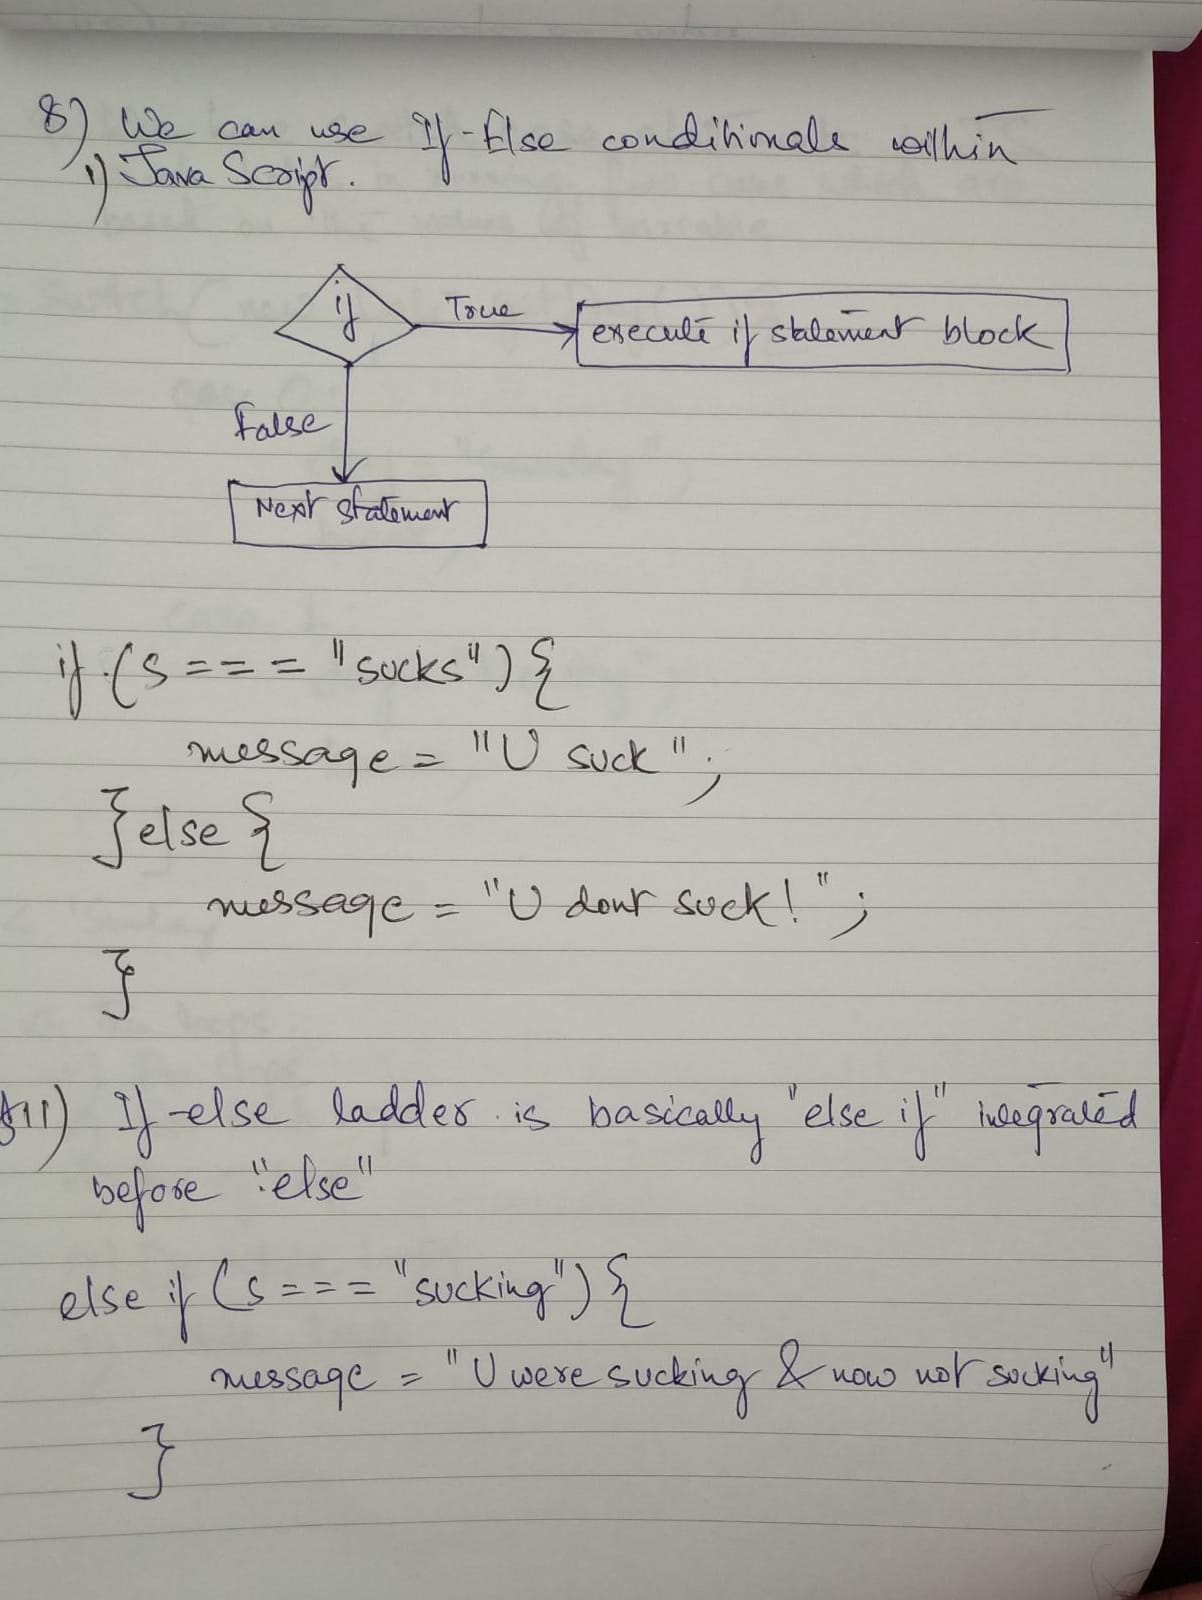 8) We can use If-Else conditionals within
1) Java Script.
if
True
execute if statement block
False
Next statement
if (s === "sucks") {
message = "U suck";
} else {
message = "U dont suck!";
}
11) If-else ladder is basically "else if" integrated
before "else"
else if (s === "sucking") {
message = "U were sucking & now not sucking"
}